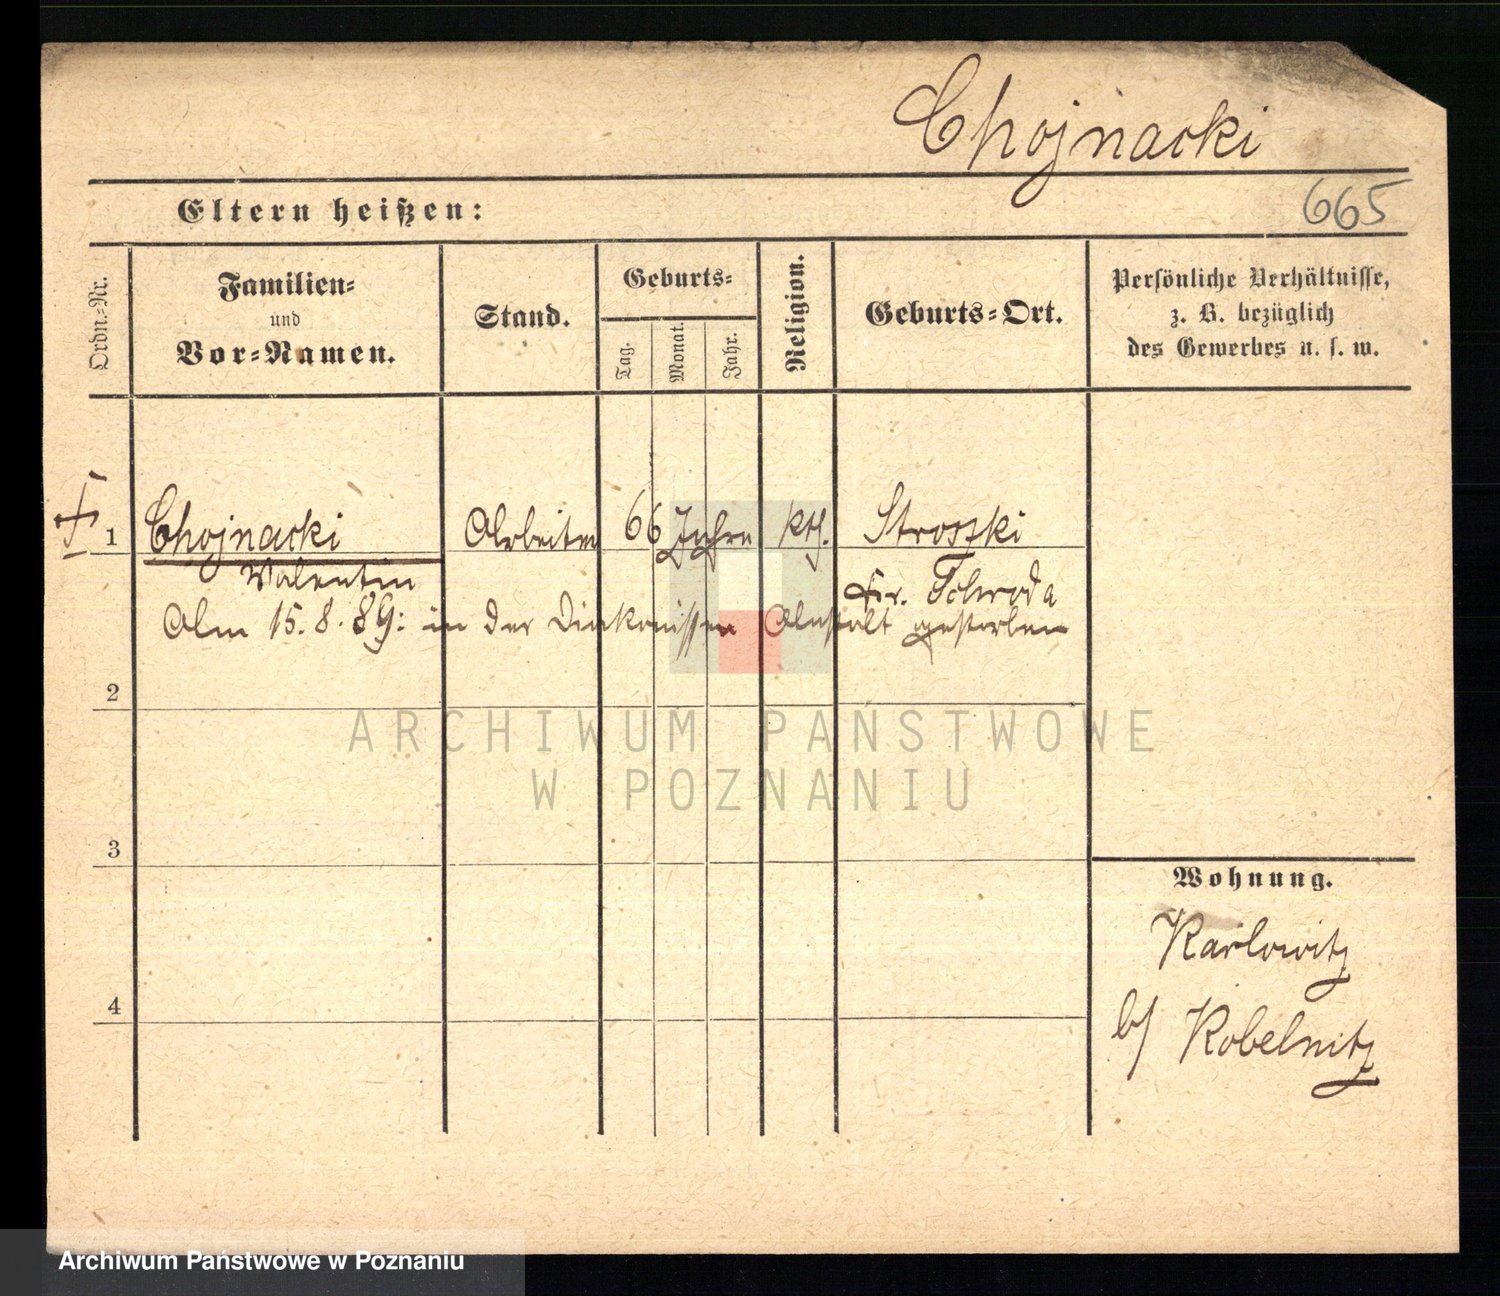 Chojnacki
Eltern heißen:
665
Ordn.-Nr.
Familien-
und
Vor-Namen.
Stand.
Geburts-
Tag.
Monat.
Jahr.
Religion.
Geburts-Ort.
Persönliche Verhältnisse,
z. B. bezüglich
des Gewerbes u. s. w.
1 Chojnacki Arbeiter 66 Jahre kth. Stroszki
Valentin Kr. Schroda
Am 15.8.89: in der Diakonissen Anstalt gestorben
2
ARCHIWUM PAŃSTWOWE
W POZNANIU
3
Wohnung.
Karlowitz
b/ Kobelnitz
4
Archiwum Państwowe w Poznaniu